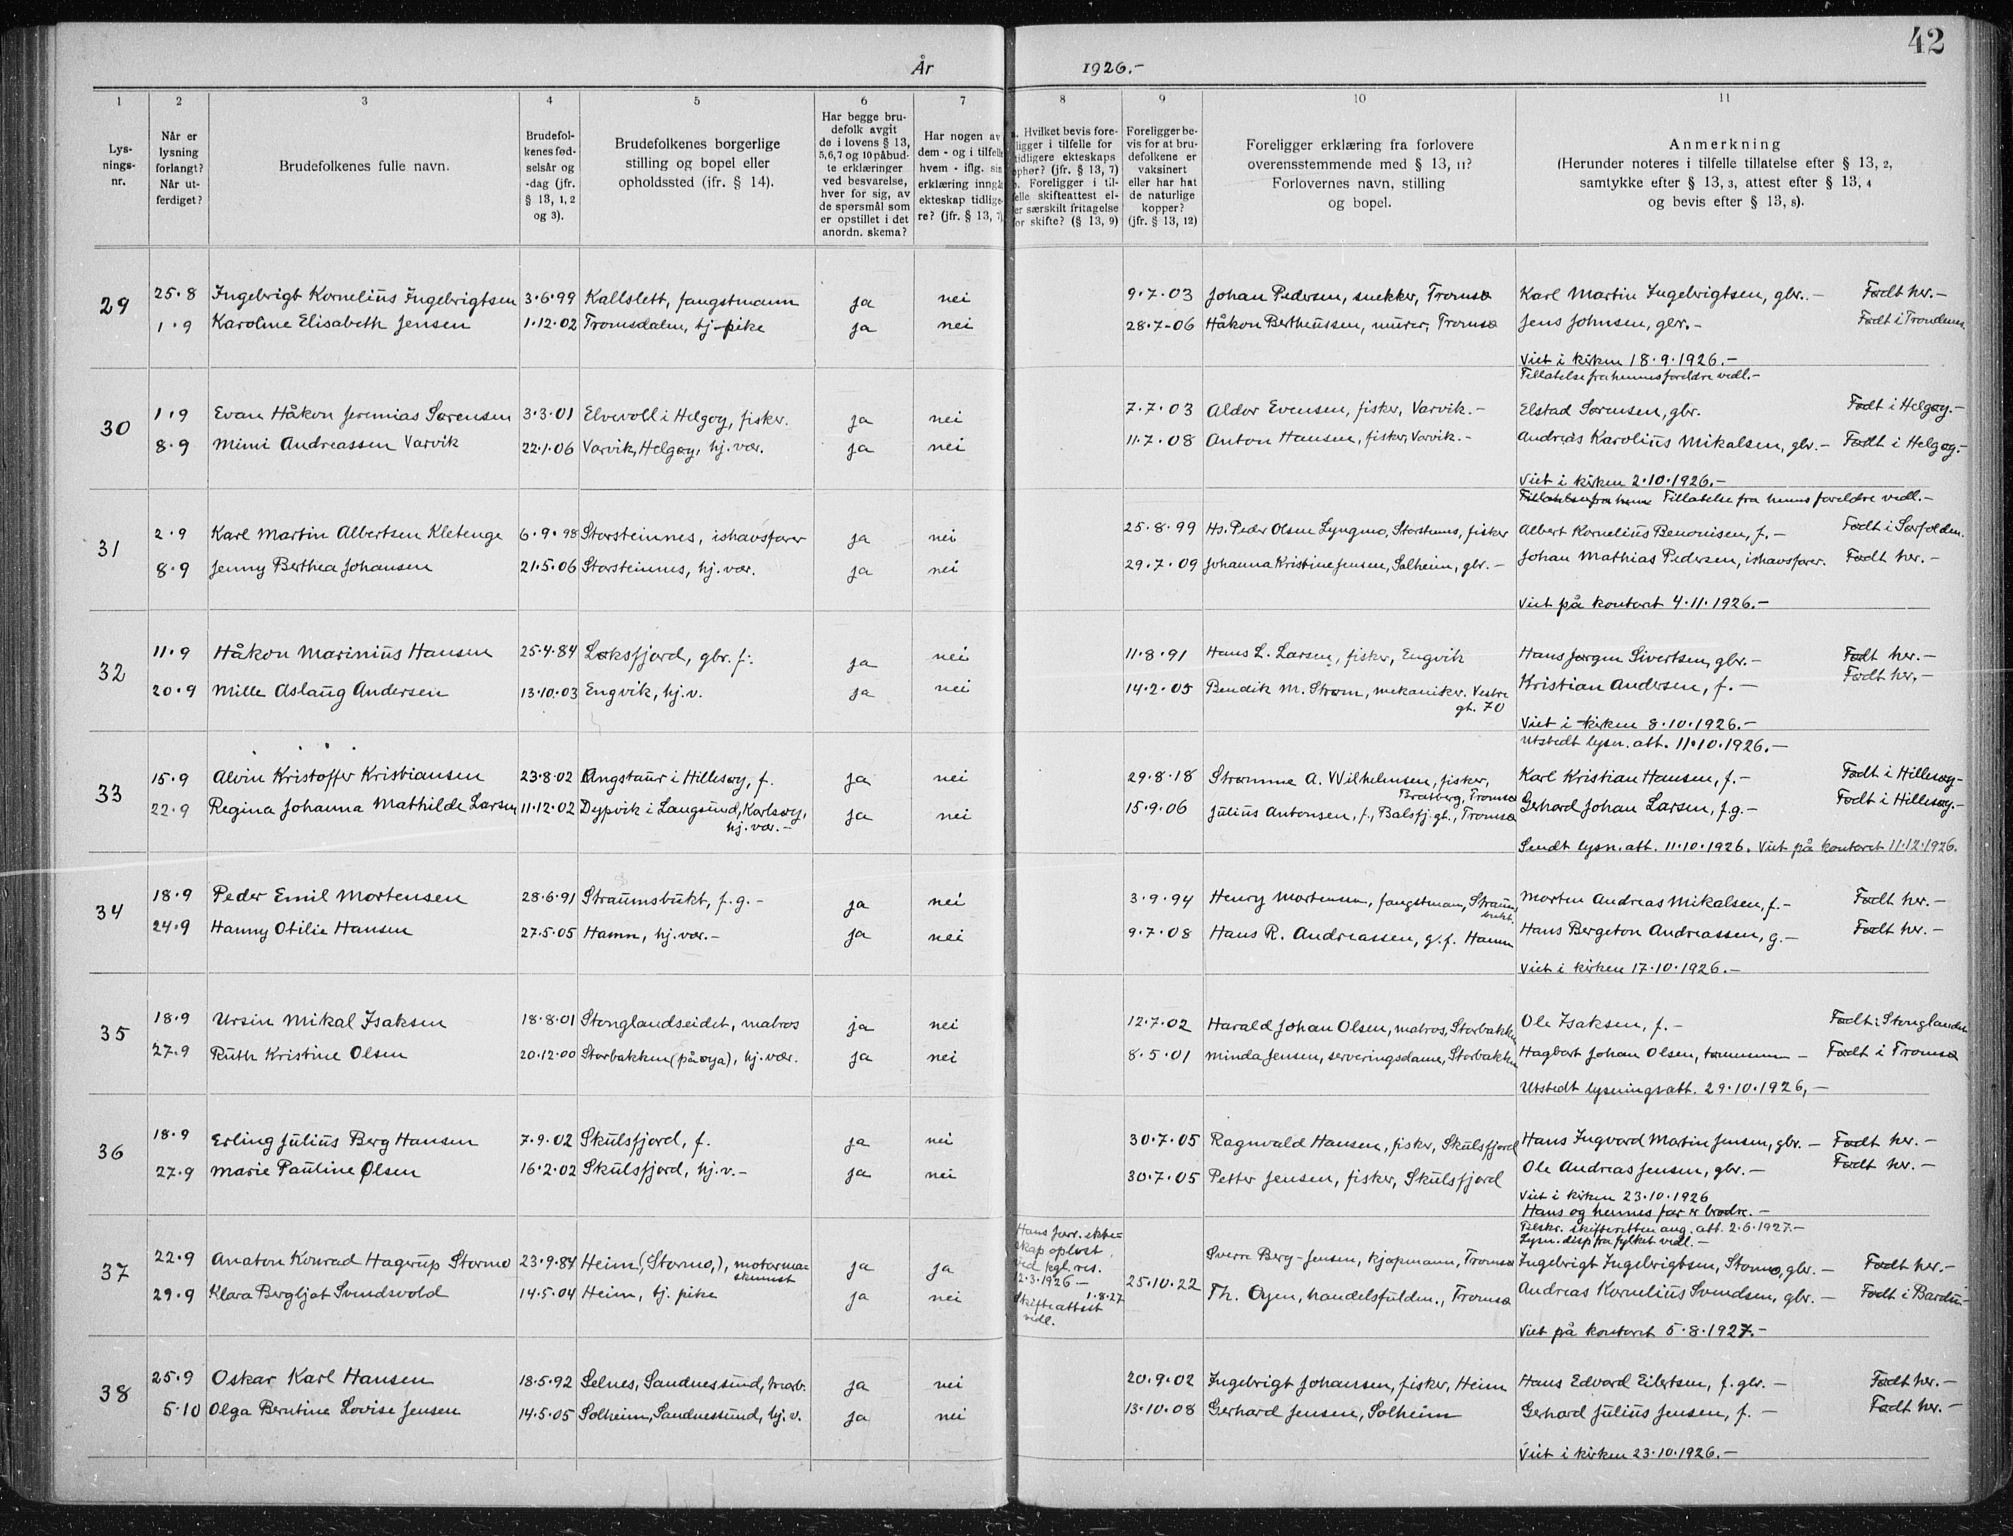 42
År 1926.-
1 2 3 4 5 6 7 8 9 10 11
Lys-
nings-
nr.
Når er
lysning
forlangt?
Når ut-
ferdiget?
Brudefolkenes fulle navn.
Brudefol-
kenes fød-
selsår og
-dag (jfr.
§ 13, 1, 2
og 3).
Brudefolkenes borgerlige
stilling og bopel eller
opholdssted (ifr. § 14).
Har begge bru-
defolk avgit
de i lovens § 13,
5,6,7 og 10 påbud-
te erklæringer
ved besvarelse,
hver for sig, av
de spørsmål som
er opstillet i det
anordn. skema?
Har nogen av
dem - og i tilfelle
hvem - iflg. sin
erklæring inngå
ekteskap tidlige-
re? (jfr. § 13, 7)
a. Hvilket bevis fore-
ligger i tilfelle for
tidligere ekteskaps
ophør? (jfr. § 13, 7)
b. Foreligger i til-
felle skifteattest el-
ler særskilt fritagelse
for skifte? (§ 13, 9)
Foreligger be-
vis for at bru-
defolkene er
vaksinert
eller har hat
de naturlige
kopper?
(jfr. § 13, 12)
Foreligger erklæring fra forlovere
overensstemmende med § 13, 11?
Forlovernes navn, stilling
og bopel.
Anmerkning
(Herunder noteres i tilfelle tillatelse efter § 13, 2,
samtykke efter § 13, 3, attest efter § 13, 4
og bevis efter § 13, 8).
29 25.8 Ingebrigt Kornelius Ingebrigtsen 3.6.99 Kallslett, fangstmann ja nei 9.7.03 Johan Pedersen, snekker, Tromsø Karl Martin Ingebrigtsen, gbr.- Født her.-
1.9 Karoline Elisabeth Jensen 1.12.02 Tromsdalen, tj-pike ja nei 28.7-06 Håkon Bertheussen, murer, Tromsø Jens Johnsen, gbr.- Født i Trondenes.
Viet i kirken 18.9.1926.-
Tillatelse fra hennes foreldre vedl.-
30 1.9 Evan Håkon Jeremias Sørensen 3.3.01 Elvevoll i Helgøy, fisker. ja nei 7.7.03 Aldor Evensen, fisker, Varvik.- Elstad Sørensen, gbr. Født i Helgøy.-
8.9 Mimi Andreassen Varvik 22.1.06 Varvik, Helgøy, hj. vær. ja nei 11.7.08 Anton Hansen, fisker, Varvik.- Andreas Karolius Mikalsen, gbr.- Født i Helgøy.-
Viet i kirken 2.10.1926.-
Tillatelse fra henn Tillatelse fra hennes foreldre vedl.-
31 2.9 Karl Martin Albertsen Kletenge 6.9.98 Storsteinnes, ishavsfarer ja nei 25.8.99 Hs. Peder Olsen Lyngmo, Storstnnes, fisker Albert Kornelius Benonisen, f.- Født i Sørfolden.
8.9 Jenny Berthea Johansen 21.5.06 Storsteinnes, hj. vær. ja nei 29.7.09 Johanna Kristine Jensen, Solheim, gbr.- Johan Mathias Pedersen, ishavsfarer. Født her.-
Viet på kontoret 4.11.1926.-
32 11.9 Håkon Marinius Hansen 25.4.84 Løksfjord, gbr. f. ja nei 11.8.91 Hans L. Larsen, fisker, Engvik Hans Jørgen Sivertsen, gbr.- Født her.-
20.9 Mille Aslaug Andersen 13.10.03 Engvik, hj.v. ja nei 14.2.05 Bendik M. Strøm, mekaniker. Vestre
gt. 70 Kristian Andersen, f.- Født her.-
Viet i kirken 8.10.1926.-
Utstedt lysn. att. 11.10.1926.-
33 15.9 Alvin Kristoffer Kristiansen 23.8.02 Angstaur i Hillesøy, f. ja nei 29.8.18 Strømme A. Wilhelmsen, fisker,
Bratberg, Tromsø Karl Kristian Hansen, f.- Født i Hillesøy.-
22.9 Regina Johanna Mathilde Larsen 11.12.02 Dypvik i Langsund, Karlsøy,
hj. vær.- ja nei 15.9.06 Julius Antonsen, f., Balsfj. gt., Tromsø Gerhard Johan Larsen, f.g.- Født i Hillesøy.-
Sendt lysn. att. 11.10.1926. Viet på kontoret 11.12.1926.
34 18.9 Peder Emil Mortensen 28.6.91 Straumsbukt, f.g.- ja nei 3.9.94 Henry Mortensen, fangstman, Straums
bukt. Morten Andreas Mikalsen, f.- Født her.-
24.9 Hanny Otilie Hansen 27.5.05 Hamn, hj. vær.- ja nei 9.7.08 Hans R. Andreassen, g.f. Hamn Hans Bergeton Andreassen, g.- Født her.-
Viet i kirken 17.10.1926.-
35 18.9 Ursin Mikal Isaksen 18.8.01 Stonglandseidet, matros ja nei 12.7.02 Harald Johan Olsen, matros, Storbakken Ole Isaksen, f.- Født i Stonglandet
27.9 Ruth Kristine Olsen 20.12.00 Storbakken (på øya), hj. vær. ja nei 8.5.01 Minda Jensen, serveringsdame, Storbakken Hagbart Johan Olsen, tømmerm- Født i Tromsø
Utstedt lysningsatt. 29.10.1926,-
36 18.9 Erling Julius Berg Hansen 7.9.02 Skulsfjord, f. ja nei 30.7.05 Ragnvald Hansen, fisker, Skulsfjord Hans Ingvard Martin Jensen, gbr.- Født her.-
27.9 Marie Pauline Olsen 16.2.02 Skulsfjord, hj.v.- ja nei 30.7.05 Petter Jensen, fisker, Skulsfjord Ole Andreas Jensen, gbr.- Født her.-
Viet i kirken 23.10.1926
Hans og hennes far er brødre.-
Telskr. skifteretten ang. att. 2.6.1927.-
Lysn. disp fra fylket vedl.-
37 22.9 Anaton Konrad Hagerup Stormo 23.9.84 Heim, (Stormo,), motorma-
skinist ja ja Hans forr. ekte-
skap opløst
ved kgl. res.
12.3.1926- Sverre Berg-Jensen, kjøpmann, Tromsø Ingebrigt Ingebrigtsen, Stormo, gbr.- Født her.-
29.9 Klara Bergljot Svendsvold 14.5.04 Heim, tj. pike ja nei 1.8.27
Skifteattest
vedl. 25.10.22 Th. Øyen, handelsfuldm., Tromsø Andreas Kornelius Svendsen, gbr.- Født i Bardu.-
Viet på kontoret 5.8.1927.-
38 25.9 Oskar Karl Hansen 18.5.92 Selnes, Sandnessund, ja nei 20.9.02 Ingebrigt Johansen, fisker, Heim Hans Edvard Eilertsen, f. gbr.- Født her.-
5.10 Olga Berntine Lovise Jensen 14.5.05 Solheim, Sandnessund, hj. v. ja nei 13.10.08 Gerhard Jensen, Solheim Gerhard Julius Jensen, f.- Født her.-
Viet i kirken 23.10.1926.-